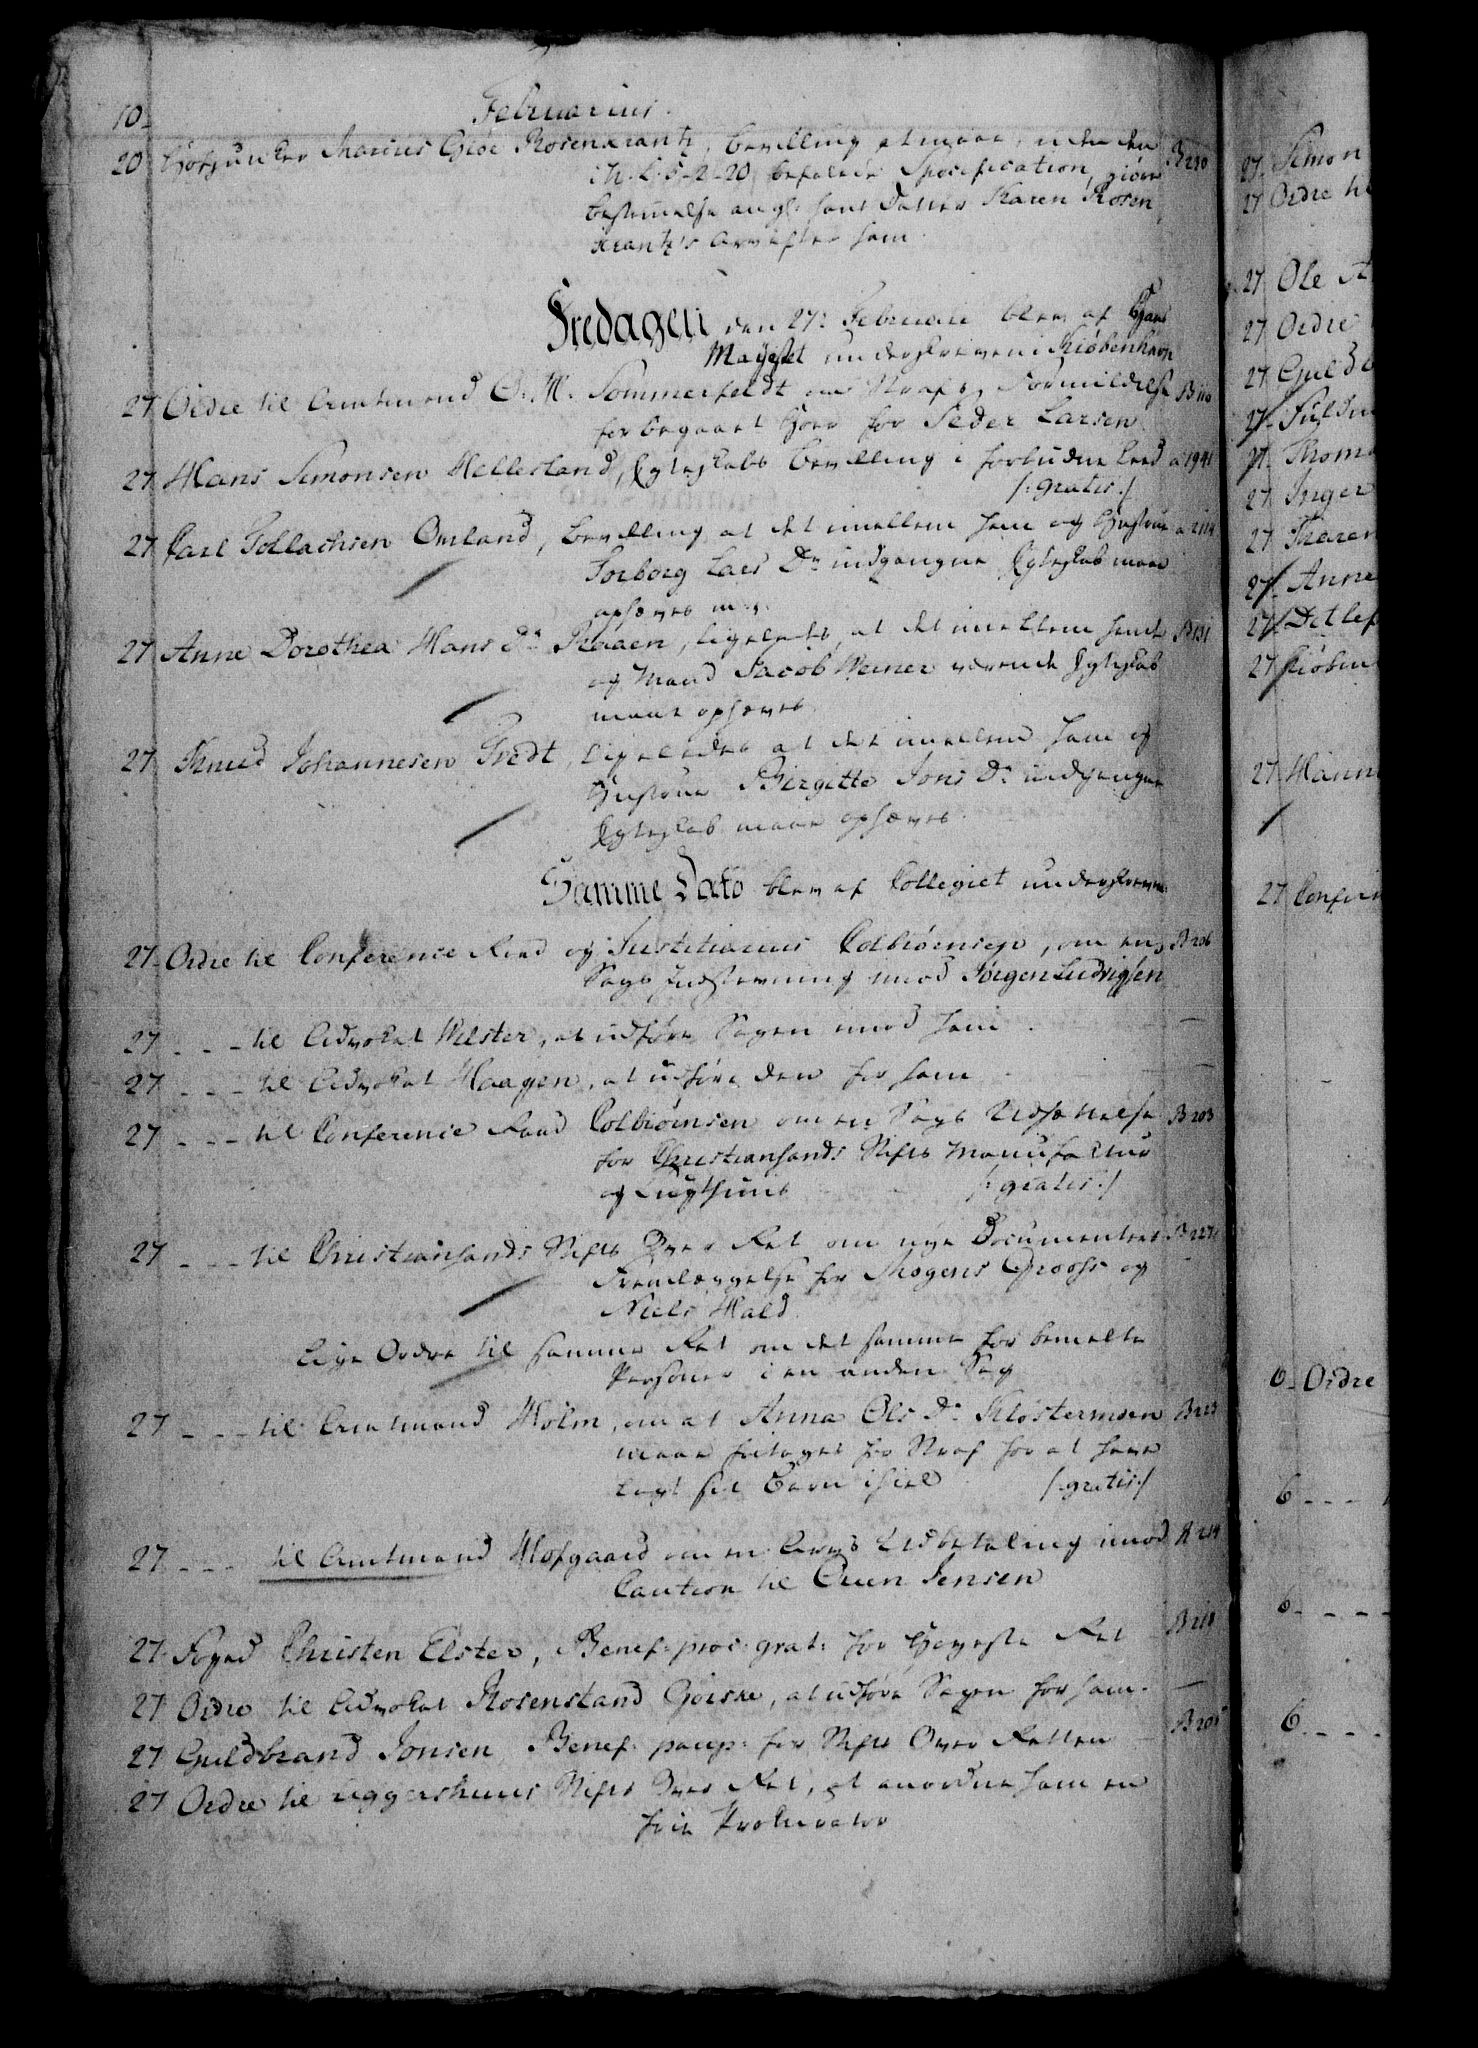 10.
Februarius.
20 Hofjunker Marcus Giøe Rosenkrantz, bevilling at maae, uden den B 230
i N. L. 5-2-20 befalede Specification, giøre
bestemmelse ang: hans Datter Karen Rosen
krantz's Arv efter ham.
Fredagen den 27de Februarii blev af Hans
Majestet underskreven i Kiøbenhavn
27 Ordre til Amtmand O. W. Sommerfeldt om Straffs Formildelse B 110
for begaaet Hoer for Peder Larsen
27 Hans Simonsen Hellesland, Egteskabs bevilling i forbudne Leed a 1941
/: gratis :/
27 Carl Tollachsen Omland, bevilling at det imellem ham og Hustrue a 2114
Torborg Lars Dr indgangne Egteskab maae
ophæves m. v.
27 Anne Dorothea Hans Dr Raaen, ligeledes, at det imellem hende B 131
og Mand Jacob Weiner værende Egteskab
maae ophæves.
27 Knud Johannesen Tvedt, ligeledes at det imellem ham og
Hustrue Birgitte Jons Dr indgangne
Egteskab maae ophæves.
Samme Dato blev af Collegiet underskreven
27 Ordre til Conference Raad og Justitiarius Colbiørnsen, om en B 206
Sags Indstevning imod Jørgen Ludvigsen
27 - - - til Advokat Wilster, at udføre Sagen imod ham. —
27 - - - til Advokat Haagen, at udføre den for ham - —
27 - - - til Conference Raad Colbiørnsen om en Sags Udsættelse B 203
for Christiansands Stifts Manufactur
og Tugthuus /: gratis :/
27 - - - til Christiansands Stifts Over Ret om nye Documenters B 227
Fremlæggelse for Mogens Grooss og
Niels Hald.
Lige Ordre til samme Ret om det samme for bemelte
Personer i en anden Sag
27 - - - til Amtmand Holm, om at Anna Ols Dr Klostermoen B 223
maae fritages for Straf for at have
lagt sit Barn ihiel /: gratis :/
27 - - - til Amtmand Hofgaard om en Arvs Udbetaling imod B 214
Caution til Even Jensen
27 Foged Christen Elster, Benef: proc: grat: for Høyeste Ret B 218
27 Ordre til Advokat Rosenstand Goiske, at udføre Sagen for ham. —
27 Guldbrand Jonsen Benef: paup: for Stifts Over Retten — B 205
27 Ordre til Aggershuus Stifts Over Ret, at anordne ham en
frie Prokurator
27 Simon
27 Ordre til
27 Ole A
27 Ordre
27 Guldb
27
27 Thom
27 Inger
27 Maren
27 Anne
27 Detlef
27 Kiøbm
27 Hann
27 Confer
6 - Ordre
6 - - -
6 - - - -
6 - - - -